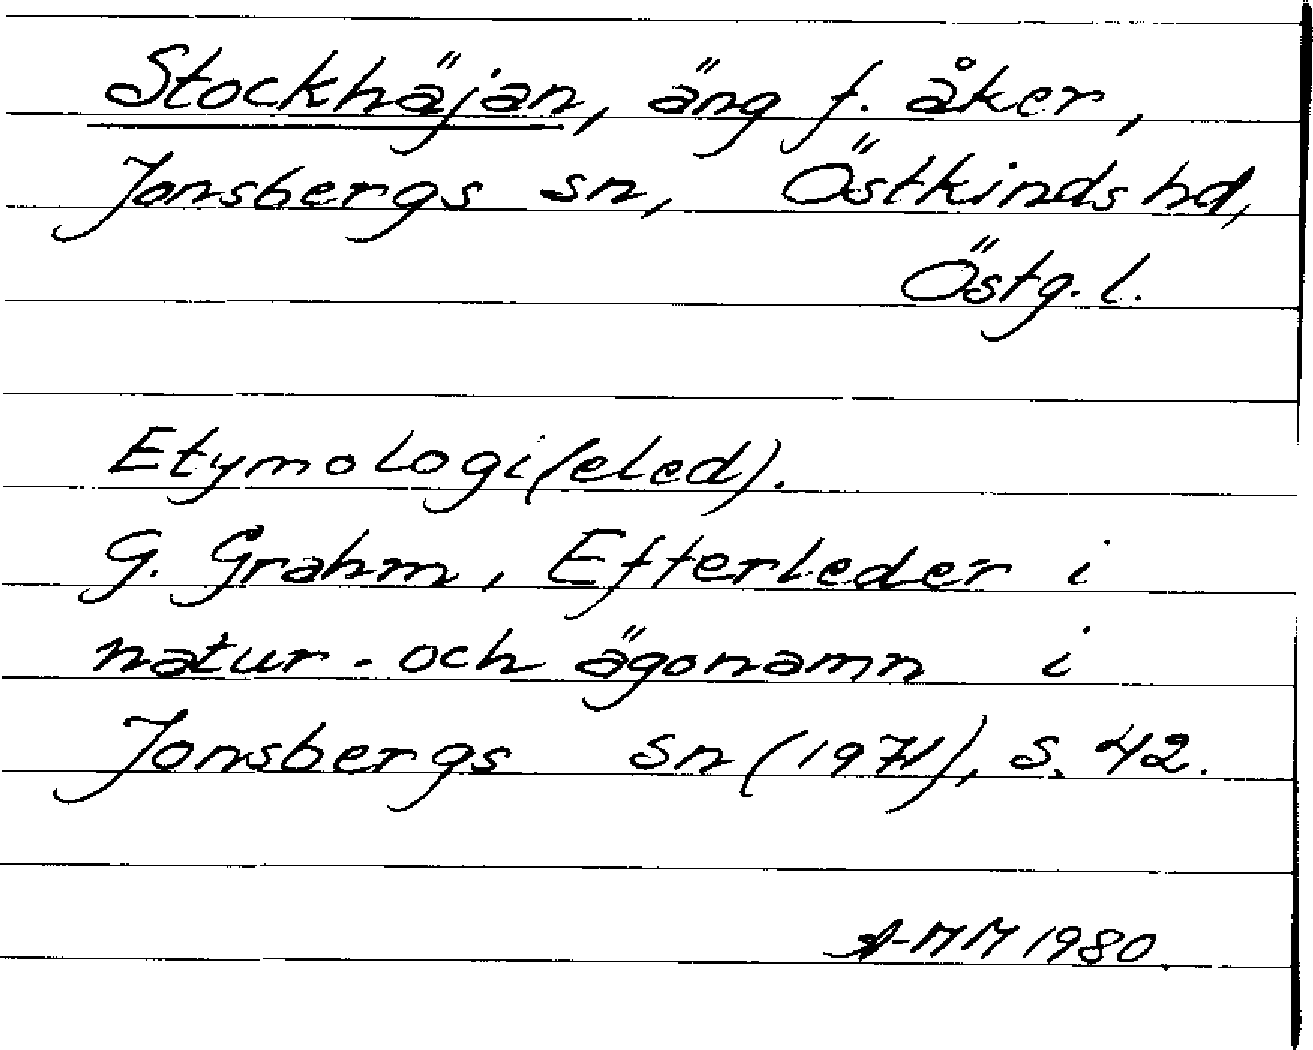 Stockhäjan, äng f. åker,
Jonsbergs sn, Östkinds hd,
Östg. l.
Etymologi (eled).
G. Grahm, Efterleder i
natur- och ägonamn i
Jonsbergs sn (1971), s. 42.
A-MM 1980.